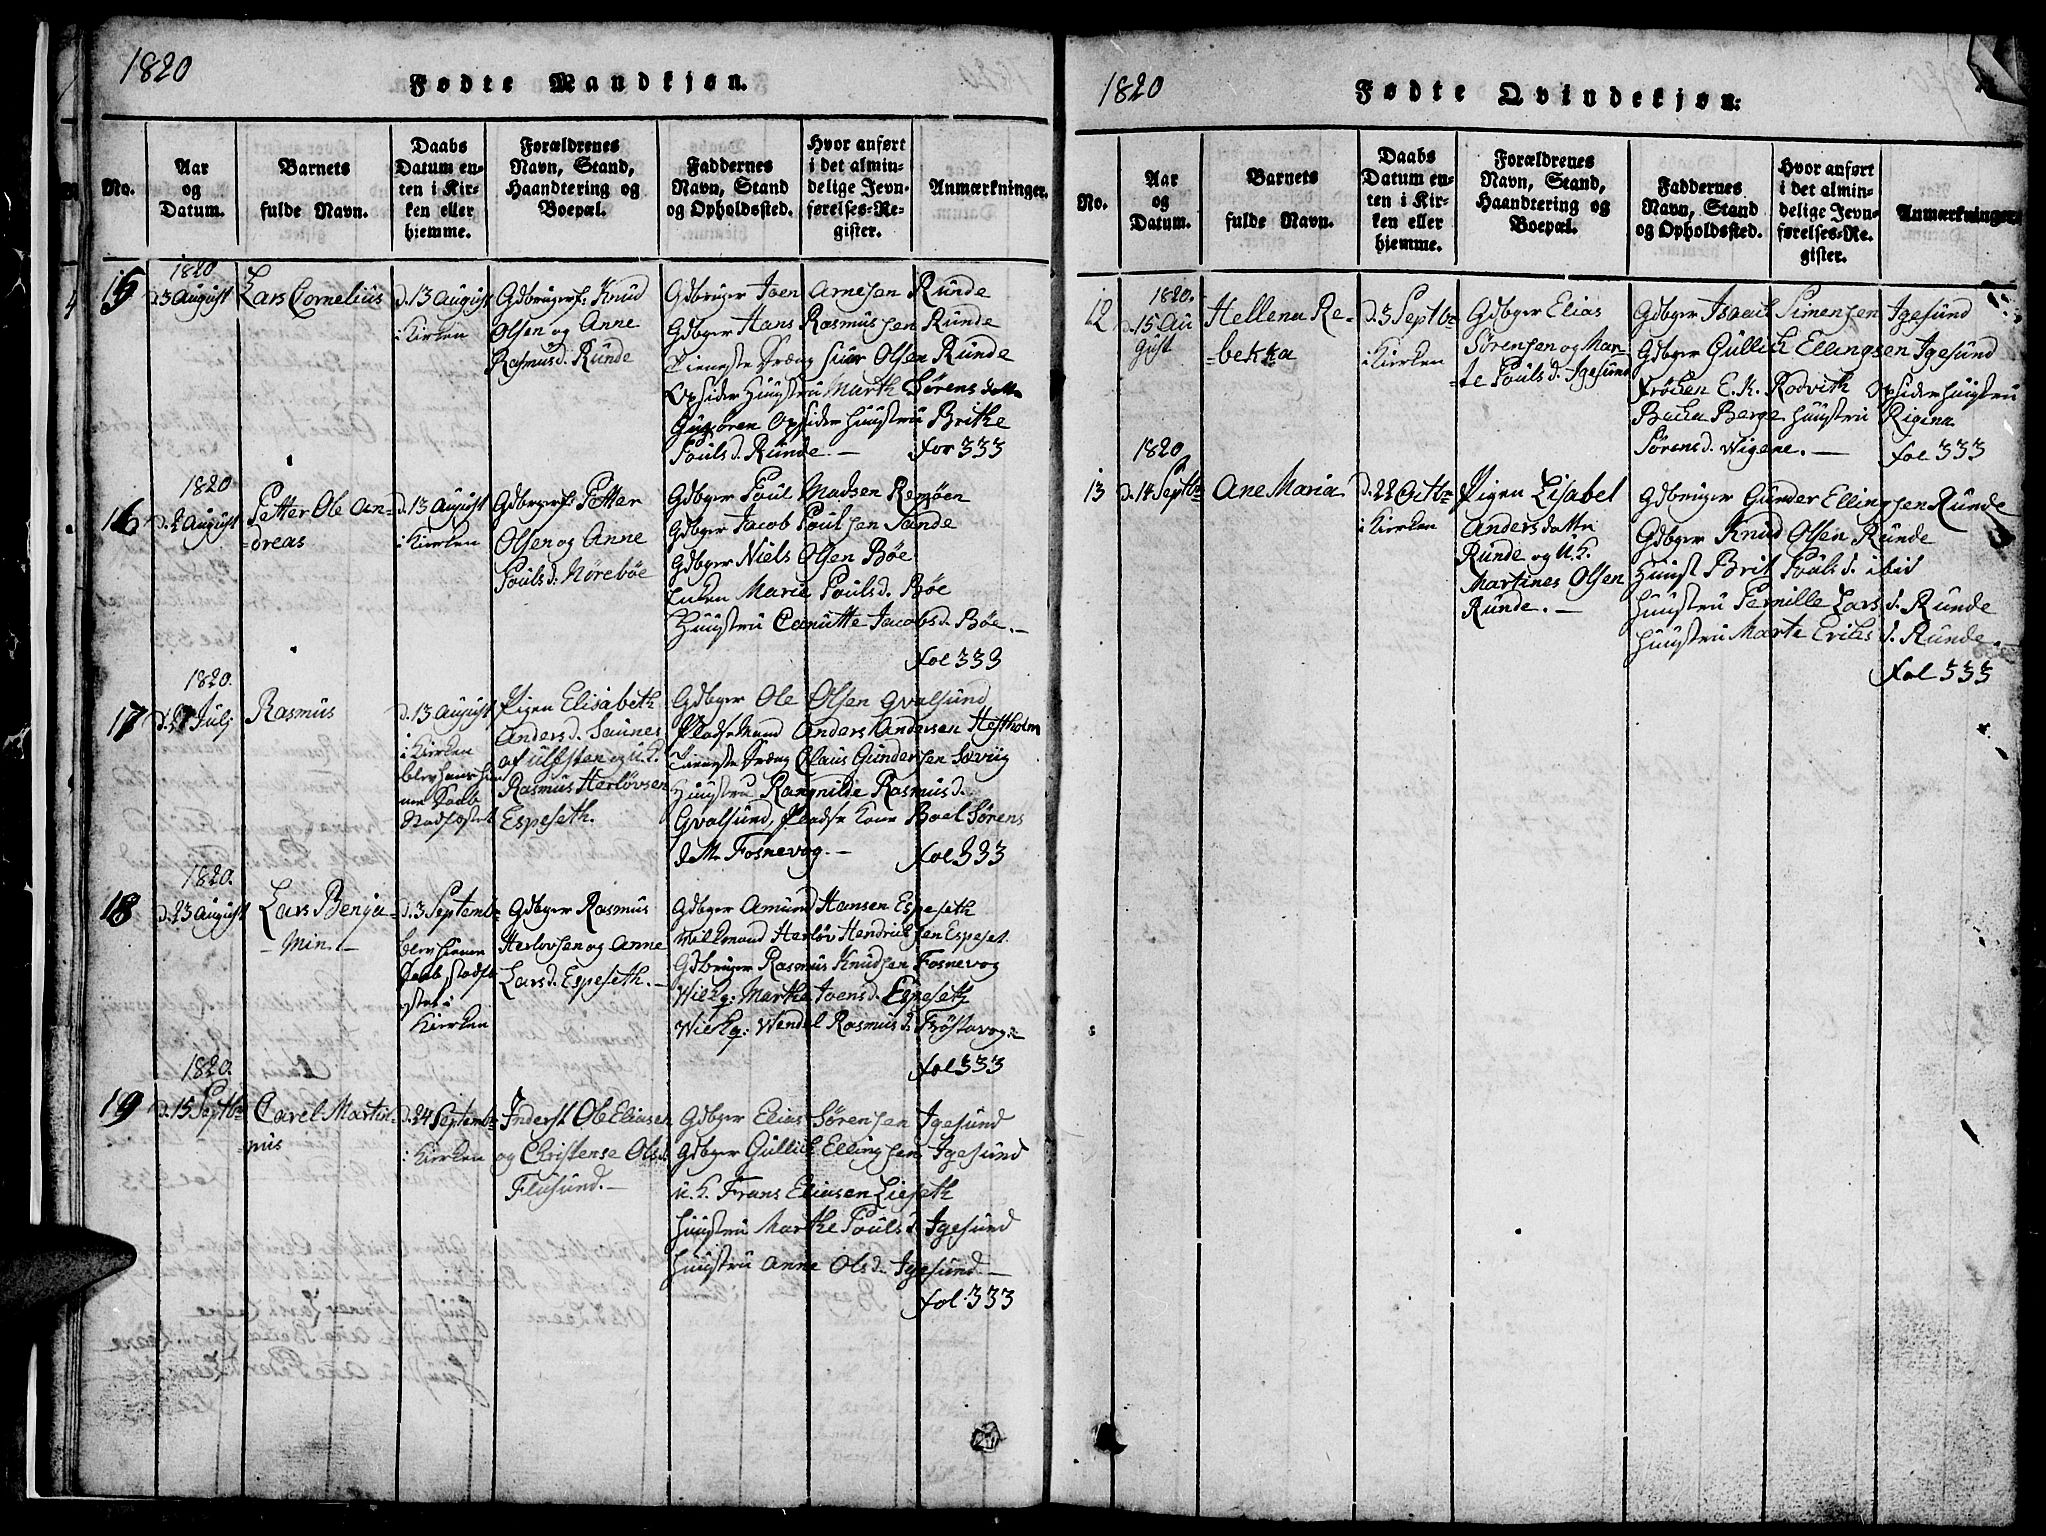 1820
Fødte Mandkjøn.
No.
Aar
og
Datum.
Barnets
fulde Navn.
Daabs
Datum en-
ten i Kir-
ken eller
hjemme.
Forældrenes
Navn, Stand,
Haandtering og
Boepæl.
Faddernes
Navn, Stand
og Opholdssted.
Hvor anført
i det almin-
delige Jevn-
førelses-Re-
gister.
Anmærkninger.
15
1820
d. 3 August
Lars Cornelius
d. 13 August
i Kirken
Gdbruger f: Knud
Olsen og Anne
Rasmusd. Runde
Gdbruger Joen Arnesen Runde
Gdbger Hans Rasmussen Runde
Tieneste Dræng Siur Olsen Runde
Opsider Huustru Marth Sørensdatter
Opsider Huustru Brithe
Poulsd. Runde. — for 333
16
1820
d. 2 August
Petter Ole An-
-dreas
d. 13 August
i Kirken
Gdbger f. Petter
Olsen og Anne
Poulsd: Nørebøe
Gdbger Poul Madsen Remøen
Gdbger Jacob Poulsen Sande
Gdbger Niels Olsen Bøe
Marie Poulsd. Bøe
Huustru Canutte Jacobsd. Bøe. —
fol 333
17
1820.
d. 27 Julj
Rasmus
d. 13 August
i Kirken
blev hans hie-
me Daab
Stadfæstet
Pigen Elisabeth
Andersd. Saunes
af Ulfsten og U.K.
Rasmus Herløvsen
Espeseth.
Gdbger Ole Olsen Gvalsund
Pladsemand Anders Andersen Hestholm
Tieneste Dræng Claus Gundersen
Huustru Rangnilde Rasmusd.
Gvalsund, Pladse Kone Boel Sørens
datt. Fosnevog. — fol 333
18
1820.
d. 23 August
Lars Benja-
- min. -
d. 3 Septembr
blev hiemme
Daab stadfæ-
stet i
Kirken
Gdbger Rasmus
Herlovsen og Anne
Larsd. Espeseth. —
Gdbger Amund Hansen Espeseth
Vilkmand Herløv Hendriksen Espeset
Gdbruger Rasmus Knudsen Fosnevog
Wiekq: Marthe Joensd. Espeseth
Wiekq: Wendel Rasmusd. Frøstavog. -
fol 333
19
1820.
d. 15 Septbr
Carel Martin-
-nus
d. 24 Septembr
i Kirken
Inderst Ole Eliasen
og Christense Olsd.
Flusund. —
Gdbger Elias Sørensen Igesund
Gdbger Gullich Ellingsen Igesund
U. K. Frans Eliasen Lieseth
Huustru Marthe Poulsd. Igesund
Huustru Anne Olsd. Igesund. —
fol: 333
1820
Fødte Qvindekjøn:
No.
Aar
og
Datum.
Barnets
fulde Navn.
Daabs
Datum en-
ten i Kir-
ken eller
hjemme.
Forældrenes
Navn, Stand,
Haandtering og
Boepæl.
Faddernes
Navn, Stand
og Opholdssted.
Hvor anført
i det almin-
delige Jevn-
førelses-Re-
gister.
Anmærkninger.
12
1820.
d. 15 Au
gust
Hellena Re-
-bekka
d. 3 Septbr
i Kirken
Gdbger Elias
Sørensen og Mar-
-te Poulsd. Igesund
Gdbger Isach Simensen Igesund
Gdbger Gullich Ellingsen Igesund
Frøken E. K. Rodvith Opsider Huustru
Berge Huustru Rigina
Sørensd. Wigene. — fol 333
13
1820
d. 14 Septbr
Ane Maria
d. 22 Octbr
i Kirken
Pigen Lisabel
Andersdatter
Runde og U. K.
Martines Olsen
Runde. —
Gdbruger Gunder Ellingsen Runde
Gdbger Knud Olsen Runde
Huust Brit Poulsd. ibid
Huustru Pernille Larsd. Runde
Huustru Marte Eriksd. Runde. —
fol 333